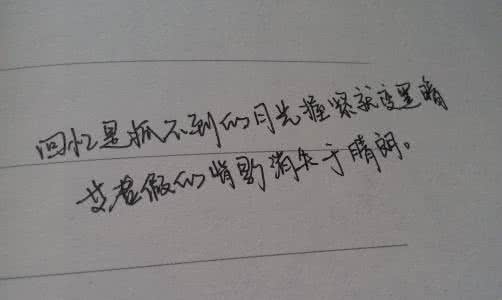 回忆是抓不到的月光握紧就变黑暗
等虚假的背影消失于晴朗。